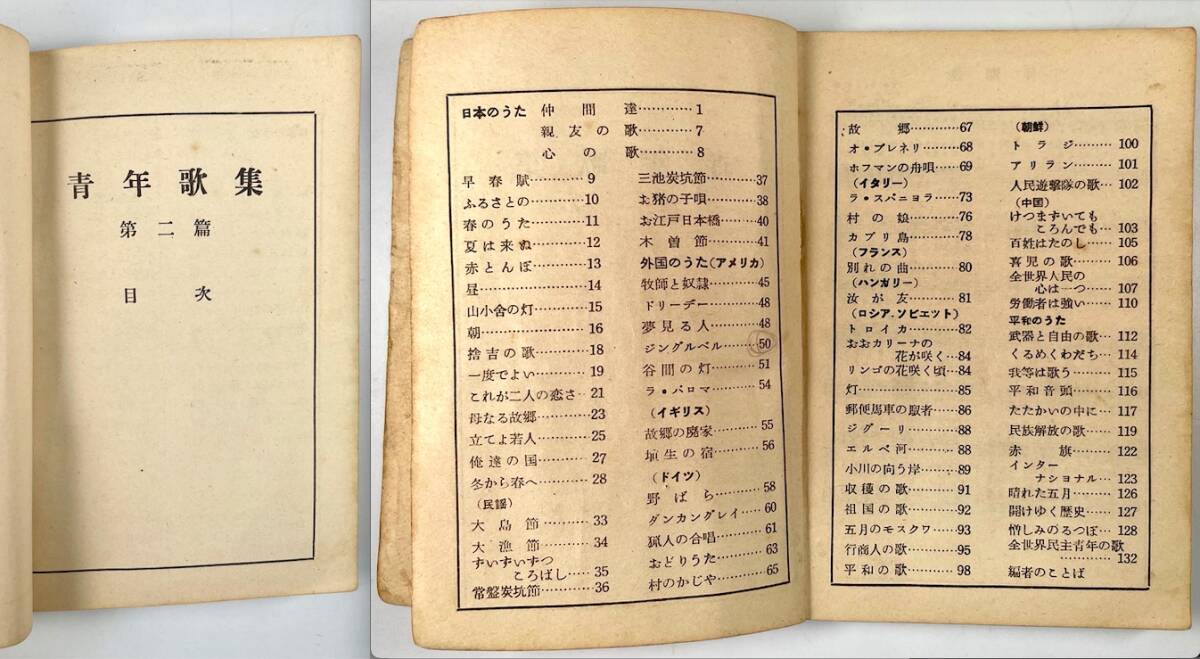 青年歌集
第二篇
目次
日本のうた 仲間達…………1
親友の歌…………7
心の歌…………8
早春賦…………9
ふるさとの…………10
春のうた…………11
夏は来ぬ…………12
赤とんぼ…………13
昼…………14
山小舎の灯…………15
朝…………16
捨吉の歌…………18
一度でよい…………19
これが二人の恋さ‥21
母なる故郷…………23
立てよ若人…………25
俺達の国…………27
冬から春へ…………28
(民謡)
大島節…………33
大漁節…………34
ずいずいずつ
ころばし……35
常盤炭坑節…………36
三池炭坑節…………37
お猪の子唄…………38
お江戸日本橋…………40
木曽節…………41
外国のうた(アメリカ)
牧師と奴隷…………45
ドリーデー…………48
夢見る人…………48
ジングルベル…………50
谷間の灯…………51
ラ・パロマ…………54
(イギリス)
故郷の廃家…………55
埴生の宿…………56
(ドイツ)
野ばら…………58
ダンカングレイ……60
猟人の合唱…………61
おどりうた…………63
村のかじや…………65
故郷…………67
オ・ブレネリ…………68
ホフマンの舟唄……69
(イタリー)
ラ・スパニョラ……73
村の娘…………76
カプリ島…………78
(フランス)
別れの曲…………80
(ハンガリー)
汝が友…………81
(ロシア,ソビエット)
トロイカ…………82
おおカリーナの
花が咲く‥84
リンゴの花咲く頃‥84
灯…………85
郵便馬車の馭者……86
ジグーリ…………88
エルベ河…………88
小川の向う岸……89
収穫の歌…………91
祖国の歌…………92
五月のモスクワ……93
行商人の歌…………95
平和の歌…………98
(朝鮮)
トラジ…………100
アリラン…………101
人民遊撃隊の歌…102
(中国)
けつまずいても
ころんでも…103
百姓はたのし……105
喜児の歌…………106
全世界人民の
心は一つ……107
労働者は強い……110
平和のうた
武器と自由の歌…112
くるめくわだち…114
我等は歌う………115
平和音頭…………116
たたかいの中に…117
民族解放の歌……119
赤旗…………122
インター
ナショナル……123
晴れた五月………126
開けゆく歴史……127
憎しみのるつぼ…128
全世界民主青年の歌
…………132
編者のことば